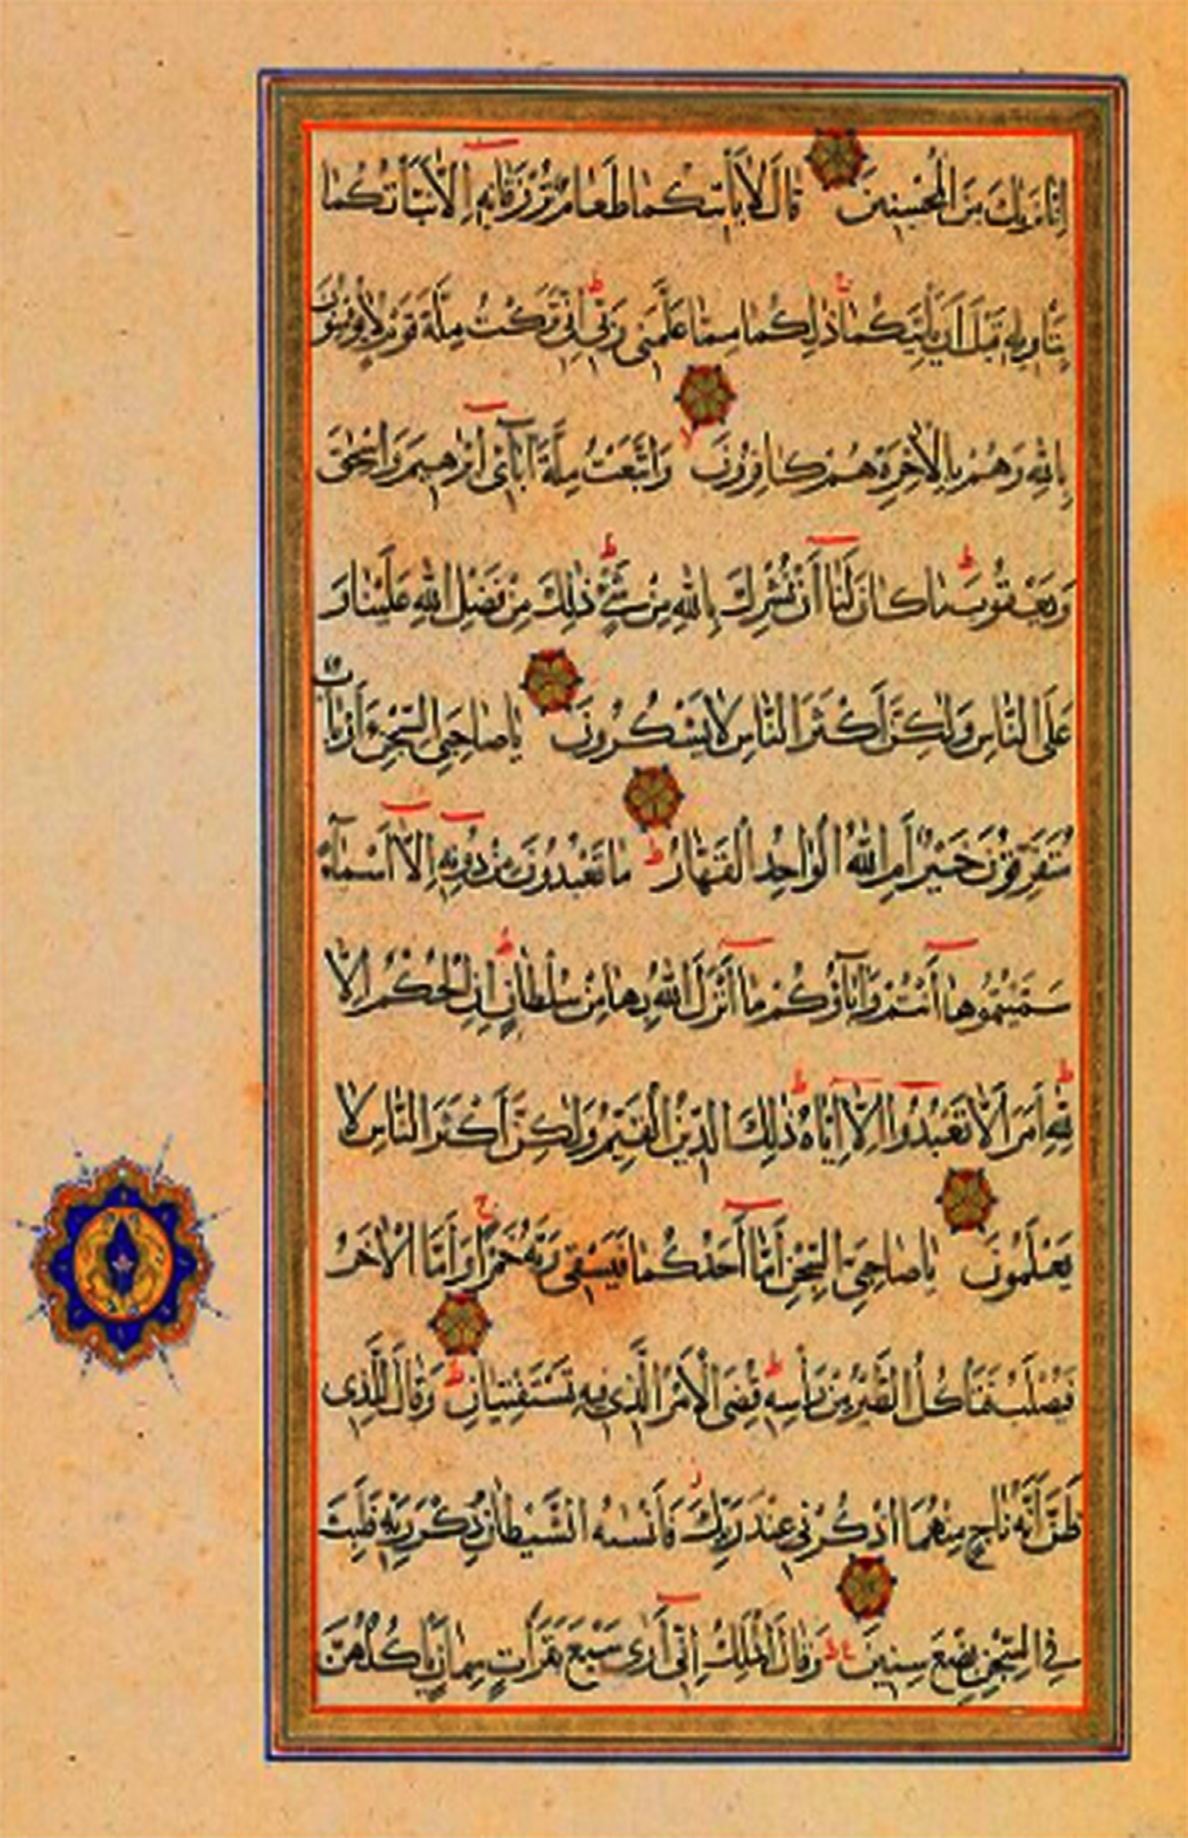 إِنَّا نَرَاكَ مِنَ الْمُحْسِنِينَ قَالَ لَا يَأْتِيكُمَا طَعَامٌ تُرْزَقَانِهِ إِلَّا نَبَّأْتُكُمَا
بِتَأْوِيلِهِ قَبْلَ أَنْ يَأْتِيَكُمَا ذَلِكُمَا مِمَّا عَلَّمَنِي رَبِّي إِنِّي تَرَكْتُ مِلَّةَ قَوْمٍ لَا يُؤْمِنُونَ
بِاللَّهِ وَهُمْ بِالْآخِرَةِ هُمْ كَافِرُونَ وَاتَّبَعْتُ مِلَّةَ آبَائِي إِبْرَاهِيمَ وَإِسْحَقَ
وَيَعْقُوبَ مَا كَانَ لَنَا أَنْ نُشْرِكَ بِاللَّهِ مِنْ شَيْءٍ ذَلِكَ مِنْ فَضْلِ اللَّهِ عَلَيْنَا وَ
عَلَى النَّاسِ وَلَكِنَّ أَكْثَرَ النَّاسِ لَا يَشْكُرُونَ يَا صَاحِبَيِ السِّجْنِ ءَأَرْبَابٌ
مُتَفَرِّقُونَ خَيْرٌ أَمِ اللَّهُ الْوَاحِدُ الْقَهَّارُ مَا تَعْبُدُونَ مِنْ دُونِهِ إِلَّا أَسْمَاءً
سَمَّيْتُمُوهَا أَنْتُمْ وَآبَاؤُكُمْ مَا أَنْزَلَ اللَّهُ بِهَا مِنْ سُلْطَانٍ إِنِ الْحُكْمُ إِلَّا
لِلَّهِ أَمَرَ أَلَّا تَعْبُدُوا إِلَّا إِيَّاهُ ذَلِكَ الدِّينُ الْقَيِّمُ وَلَكِنَّ أَكْثَرَ النَّاسِ لَا
يَعْلَمُونَ يَا صَاحِبَيِ السِّجْنِ أَمَّا أَحَدُكُمَا فَيَسْقِي رَبَّهُ خَمْرًا وَأَمَّا الْآخَرُ
فَيُصْلَبُ فَتَأْكُلُ الطَّيْرُ مِنْ رَأْسِهِ قُضِيَ الْأَمْرُ الَّذِي فِيهِ تَسْتَفْتِيَانِ وَقَالَ لِلَّذِي
ظَنَّ أَنَّهُ نَاجٍ مِنْهُمَا اذْكُرْنِي عِنْدَ رَبِّكَ فَأَنْسَاهُ الشَّيْطَانُ ذِكْرَ رَبِّهِ فَلَبِثَ
فِي السِّجْنِ بِضْعَ سِنِينَ وَقَالَ الْمَلِكُ إِنِّي أَرَى سَبْعَ بَقَرَاتٍ سِمَانٍ يَأْكُلُهُنَّ